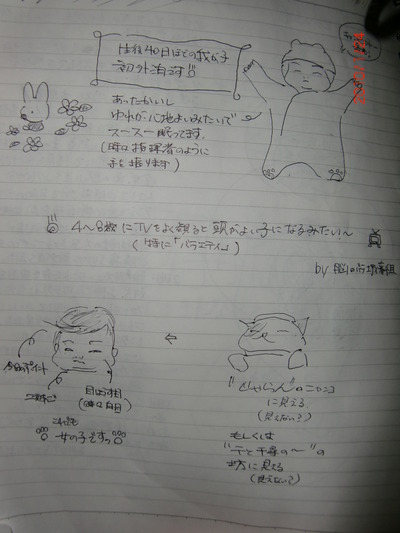 生後40日ほどの我が子
初外泊です!!
あったかいし
ゆれが心地よいみたいで
スースー眠ってます。
(時々指揮者のように
手を振ります)
4〜8歳にTVをよく観ると頭がよい子になるみたい〜
(特に「バラエティ」)
by 脳の
今日のポイント
二重あご
目はうす目
(時々白目)
これでも
女の子ですっ
←
"じゃらん"のニャンコ
に見える
(見えない?)
もしくは
"千と千尋の〜"の
坊に見える
(見えない?)